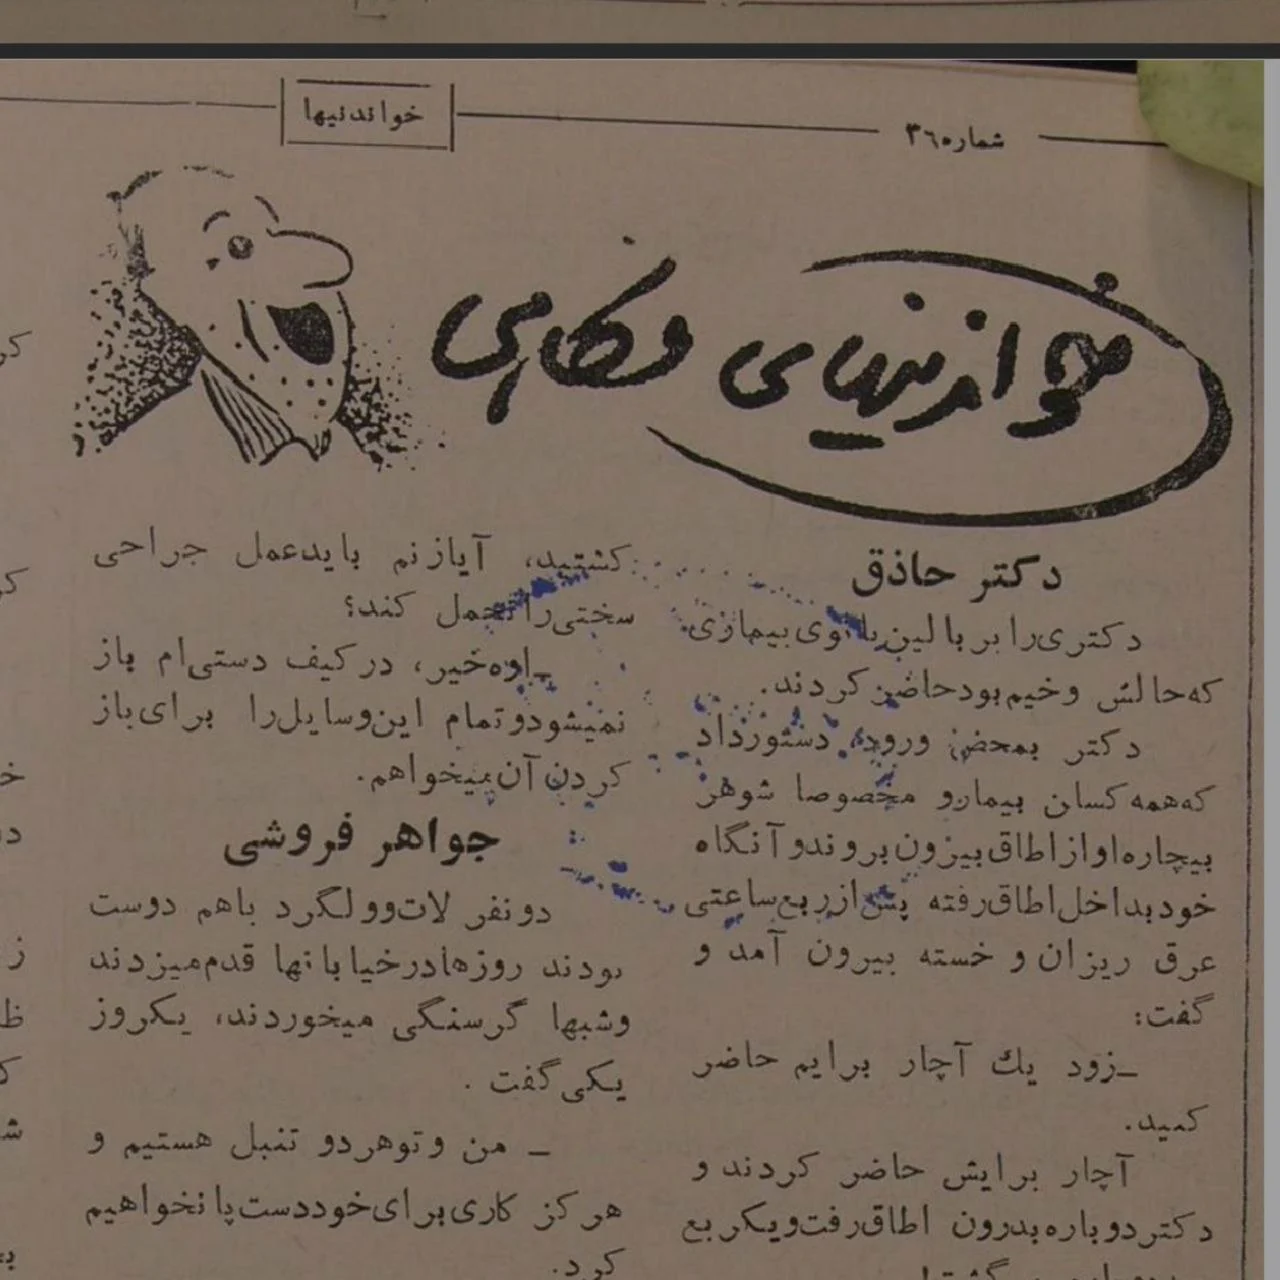 خواندنیها
شماره ۳۶۰
خواندنیهای فکاهی
دکتر حاذق
دکتری را بر بالین بانوی بیماری
که حالش وخیم بود حاضر کردند.
دکتر بمحض ورود، دستور داد
که همه کسان بیمار و مخصوصا شوهر
بیچاره او از اطاق بیرون بروند و آنگاه
خود بداخل اطاق رفته پس از ربع ساعتی
عرق ریزان و خسته بیرون آمد و
گفت:
ـ زود یك آچار برایم حاضر
کنید.
آچار برایش حاضر کردند و
دکتر دوباره بدرون اطاق رفت و یکربع
کشتید، آیا زنم باید عمل جراحی
سختی را تحمل کند؟
ـ اوه خیر، در کیف دستی‌ام باز
نمیشود و تمام این وسایل را برای باز
کردن آن میخواهم.
جواهر فروشی
دو نفر لات و ولگرد باهم دوست
بودند روزها در خیابانها قدم میزدند
و شبها گرسنگی میخوردند، یکروز
یکی گفت .
ـ من و تو هر دو تنبل هستیم و
هرکز کاری برای خود دست پا نخواهیم
کرد.